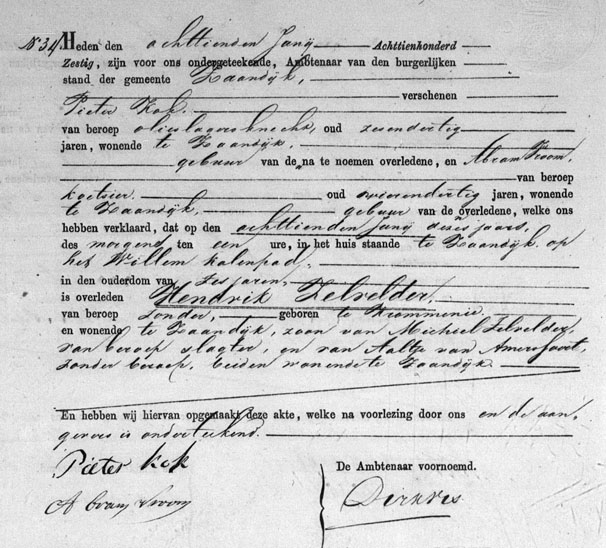 No 34. Heden den achttienden Junij Achttienhonderd
Zestig, zijn voor ons ondergeteekende, Ambtenaar van den burgerlijken
stand der gemeente Zaandijk, verschenen
Pieter Kok.
van beroep olieslagersknecht, oud zesendertig
jaren, wonende te Zaandijk,
gebuur van de na te noemen overledene, en Abram Vroom,
van beroep
koetsier. oud vierendertig jaren, wonende
te Zaandijk, gebuur van de overledene, welke ons
hebben verklaard, dat op den achttienden Junij dezes jaars,
des morgens ten een ure, in het huis staande te Zaandijk op
het Willem kalenpad.
in den ouderdom van zes jaren,
is overleden Hendrik Zelvelder,
van beroep zonder, geboren te Krommenie
en wonende te Zaandijk, zoon van Michiel Zelvelder,
van beroep slagter, en van Aaltje van Amersfoort,
zonder beroep, beiden wonende te Zaandijk.
En hebben wij hiervan opgemaakt deze akte, welke na voorlezing door ons en de aan,,
gevers is onderteekend.
Pieter Kok
De Ambtenaar voornoemd.
Abram Vroom